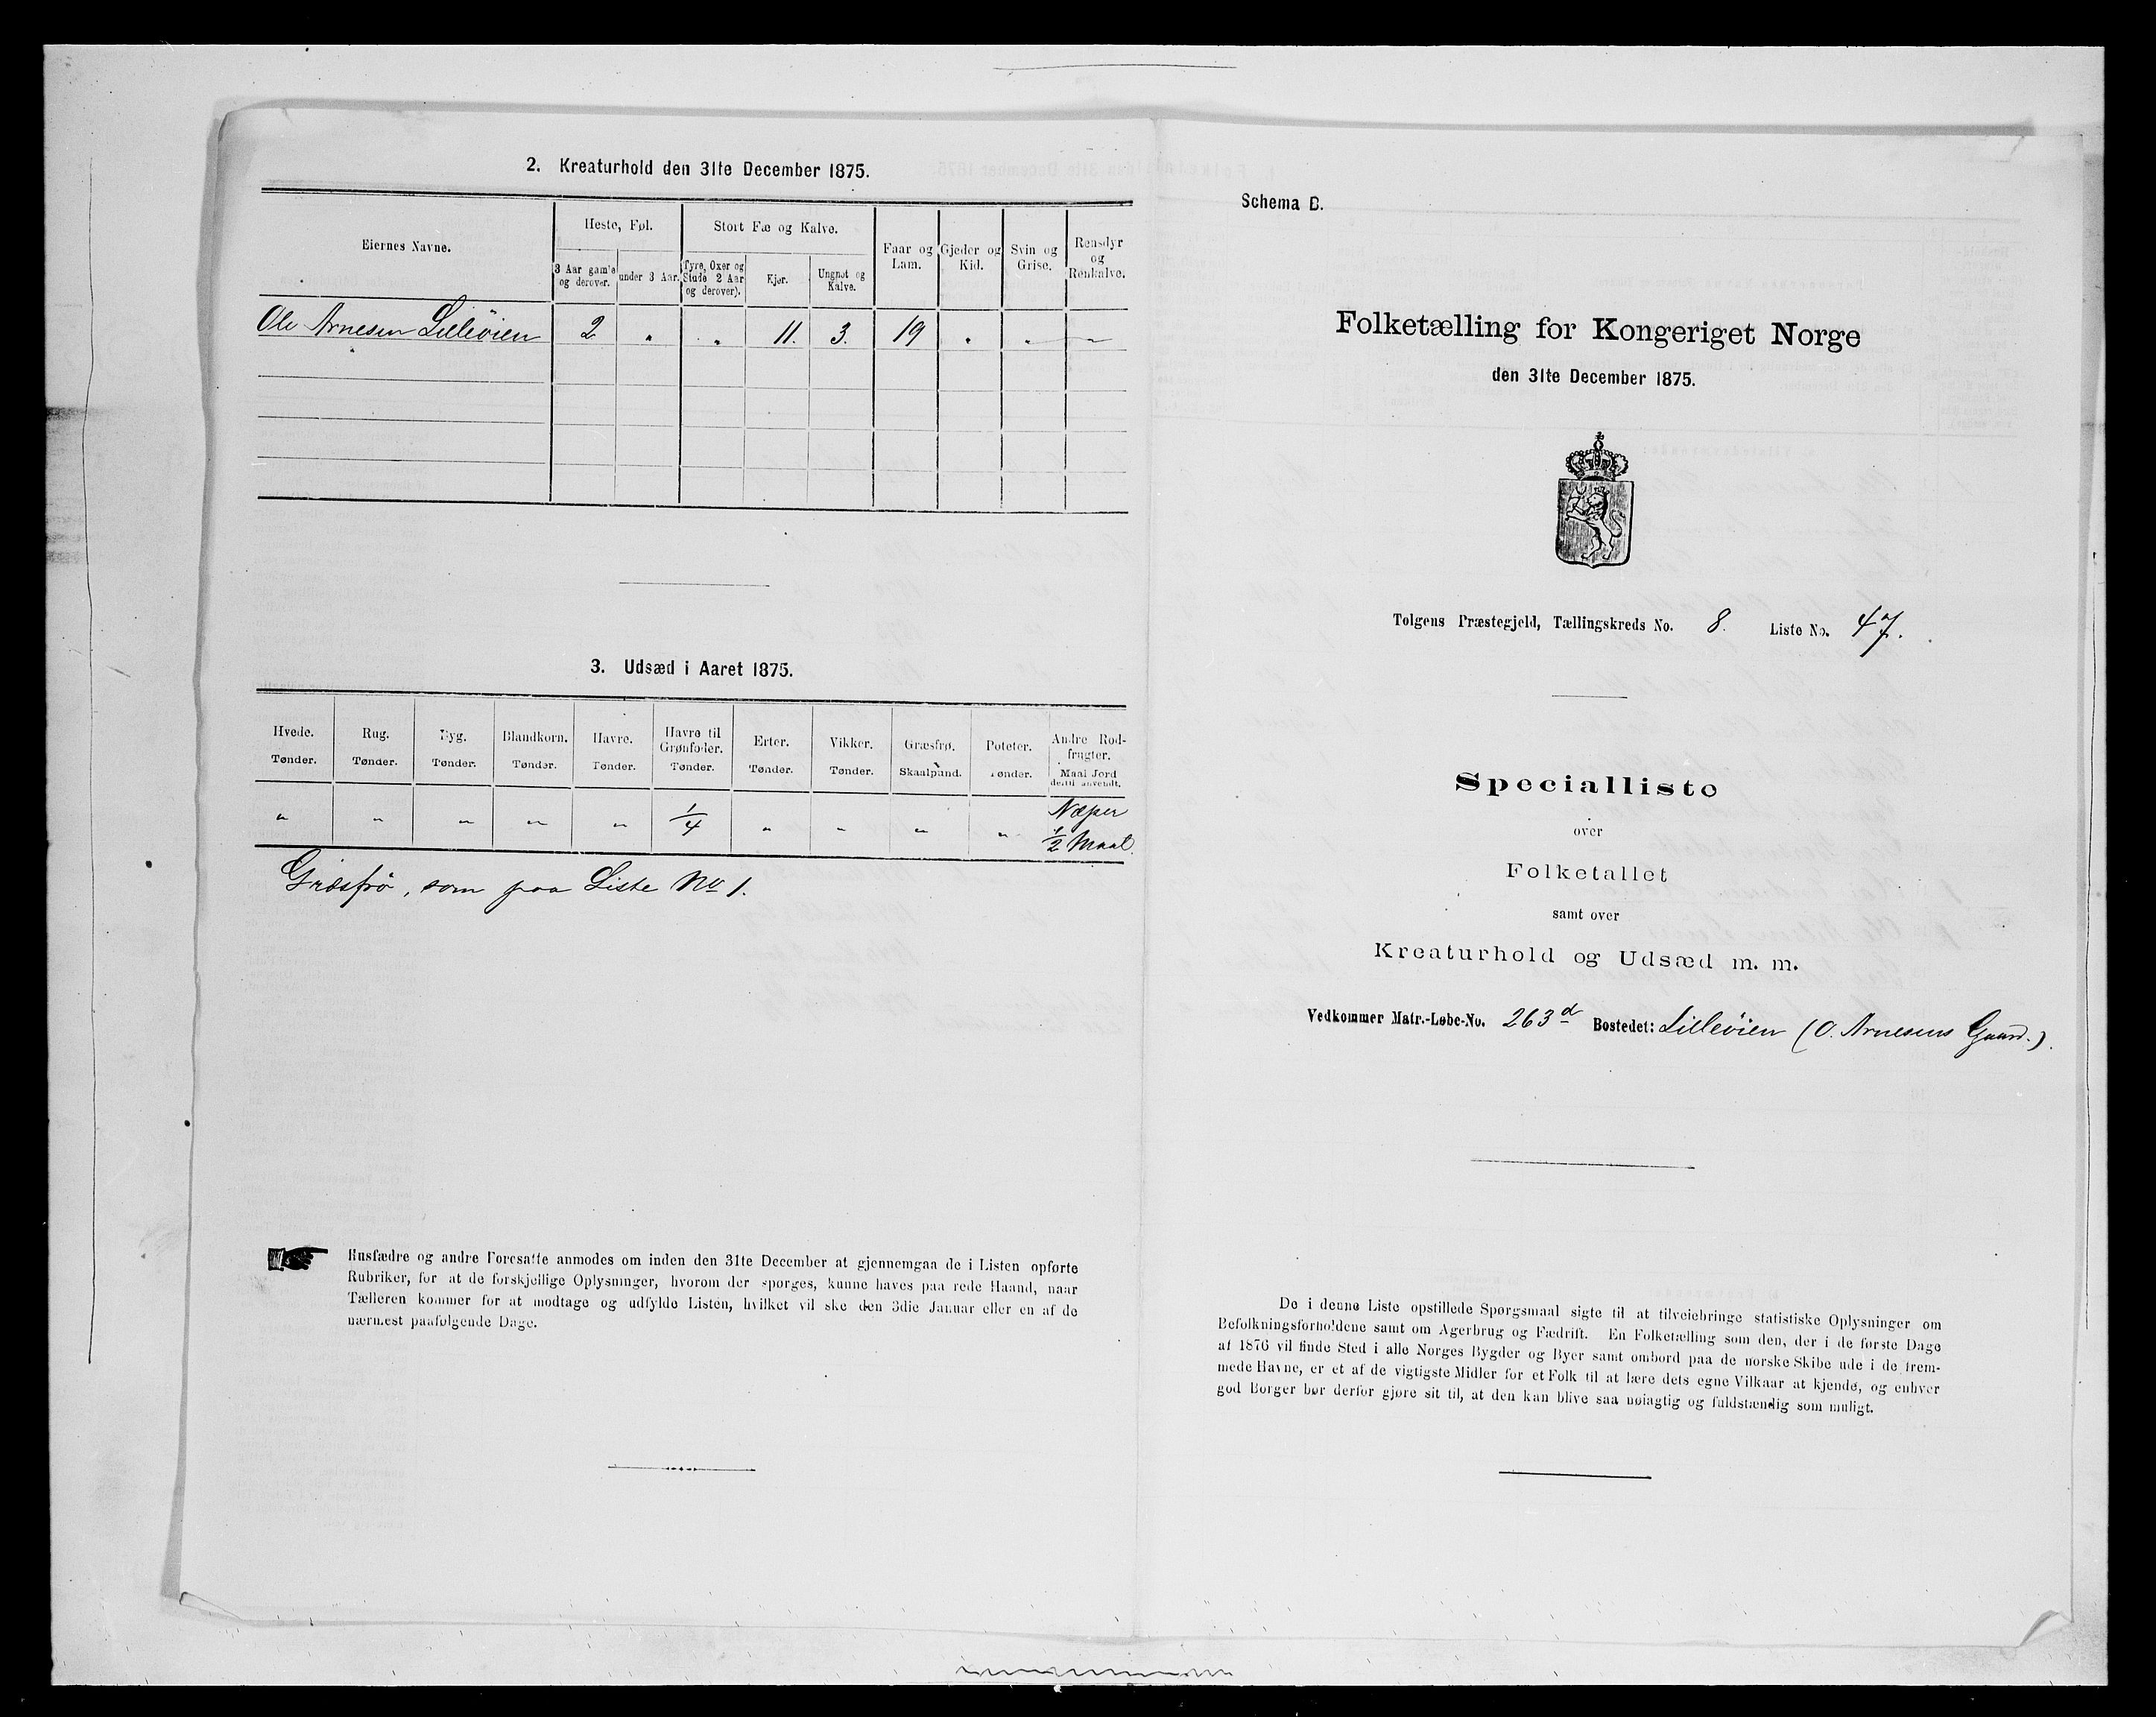 2. Kreaturhold den 31te December 1875.
Eiernes Navne.
Heste, Føl.
Stort Fæ og Kalve.
Faar og Lam.
Gjeder og Kid.
Svin og Grise.
Rensdyr og Renkalve.
3 Aar gamle og derover.
under 3 Aar.
Tyre, Oxer og Stude 2 Aar og derover).
Kjør.
Ungnøt og Kalve.
Ole Arnesen Lilleöien 2 " " 11. 3. 19 " " "
3. Udsæd i Aaret 1875.
Hvede. Rug. Byg. Blandkorn. Havre. Havre til Grønfoder. Erter. Vikker. Græsfrø. Poteter. Andre Rodfrugter.
Tønder. Tønder. Tønder. Tønder. Tønder. Tønder. Tønder. Tønder. Skaalpund. Tønder. Maal Jord dertil anvendt.
" " " " " 1/4 " " " " Næper 1/2 Maal.
Græsfrö, som paa Liste No 1.
Husfædre og andre Foresatte anmodes om inden den 31te December at gjennemgaa de i Listen opførte
Rubriker, for at de forskjellige Oplysninger, hvorom der spørges, kunne haves paa rede Haand, naar
Tælleren kommer for at modtage og udfylde Listen, hvilket vil ske den 3die Januar eller en af de
nærmest paafølgende Dage.
Schema B.
Folketælling for Kongeriget Norge
den 31te December 1875.
Tolgens Præstegjeld, Tællingskreds No. 8. Liste No. 47.
Specialliste
over
Folketallet
samt over
Kreaturhold og Udsæd m. m.
Vedkommer Matr.-Løbe-No. 263 d Bostedet: Lilleöien (O. Arnesens Gaard.).
De i denne Liste opstillede Spørgsmaal sigte til at tilveiebringe statistiske Oplysninger om
Befolkningsforholdene samt om Agerbrug og Fædrift. En Folketælling som den, der i de første Dage
af 1876 vil finde Sted i alle Norges Bygder og Byer samt ombord paa de norske Skibe ude i de frem-
mede Havne, er et af de vigtigste Midler for et Folk til at lære dets egne Vilkaar at kjende, og enhver
god Borger bør derfor gjøre sit til, at den kan blive saa nøiagtig og fuldstændig som muligt.